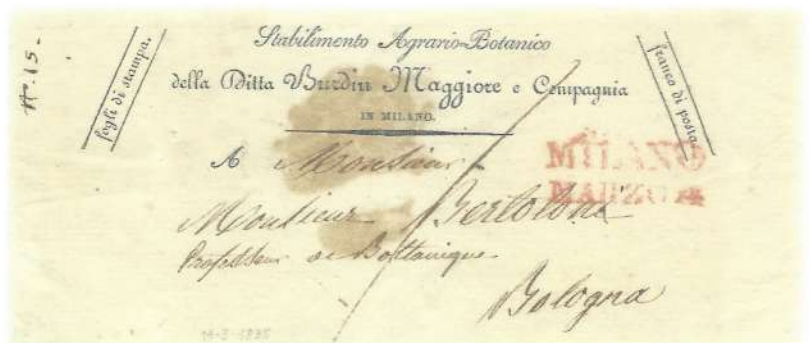 N.º 15.-
fogli di stampa.
Stabilimento Agrario-Botanico
della Ditta Burdin Maggiore e Compagnia
IN MILANO.
franco di posta
A Monsieur
MILANO
MARZO 14
Monsieur Bertoloni
Professeur de Bottanique
Bologna
14-3-1835